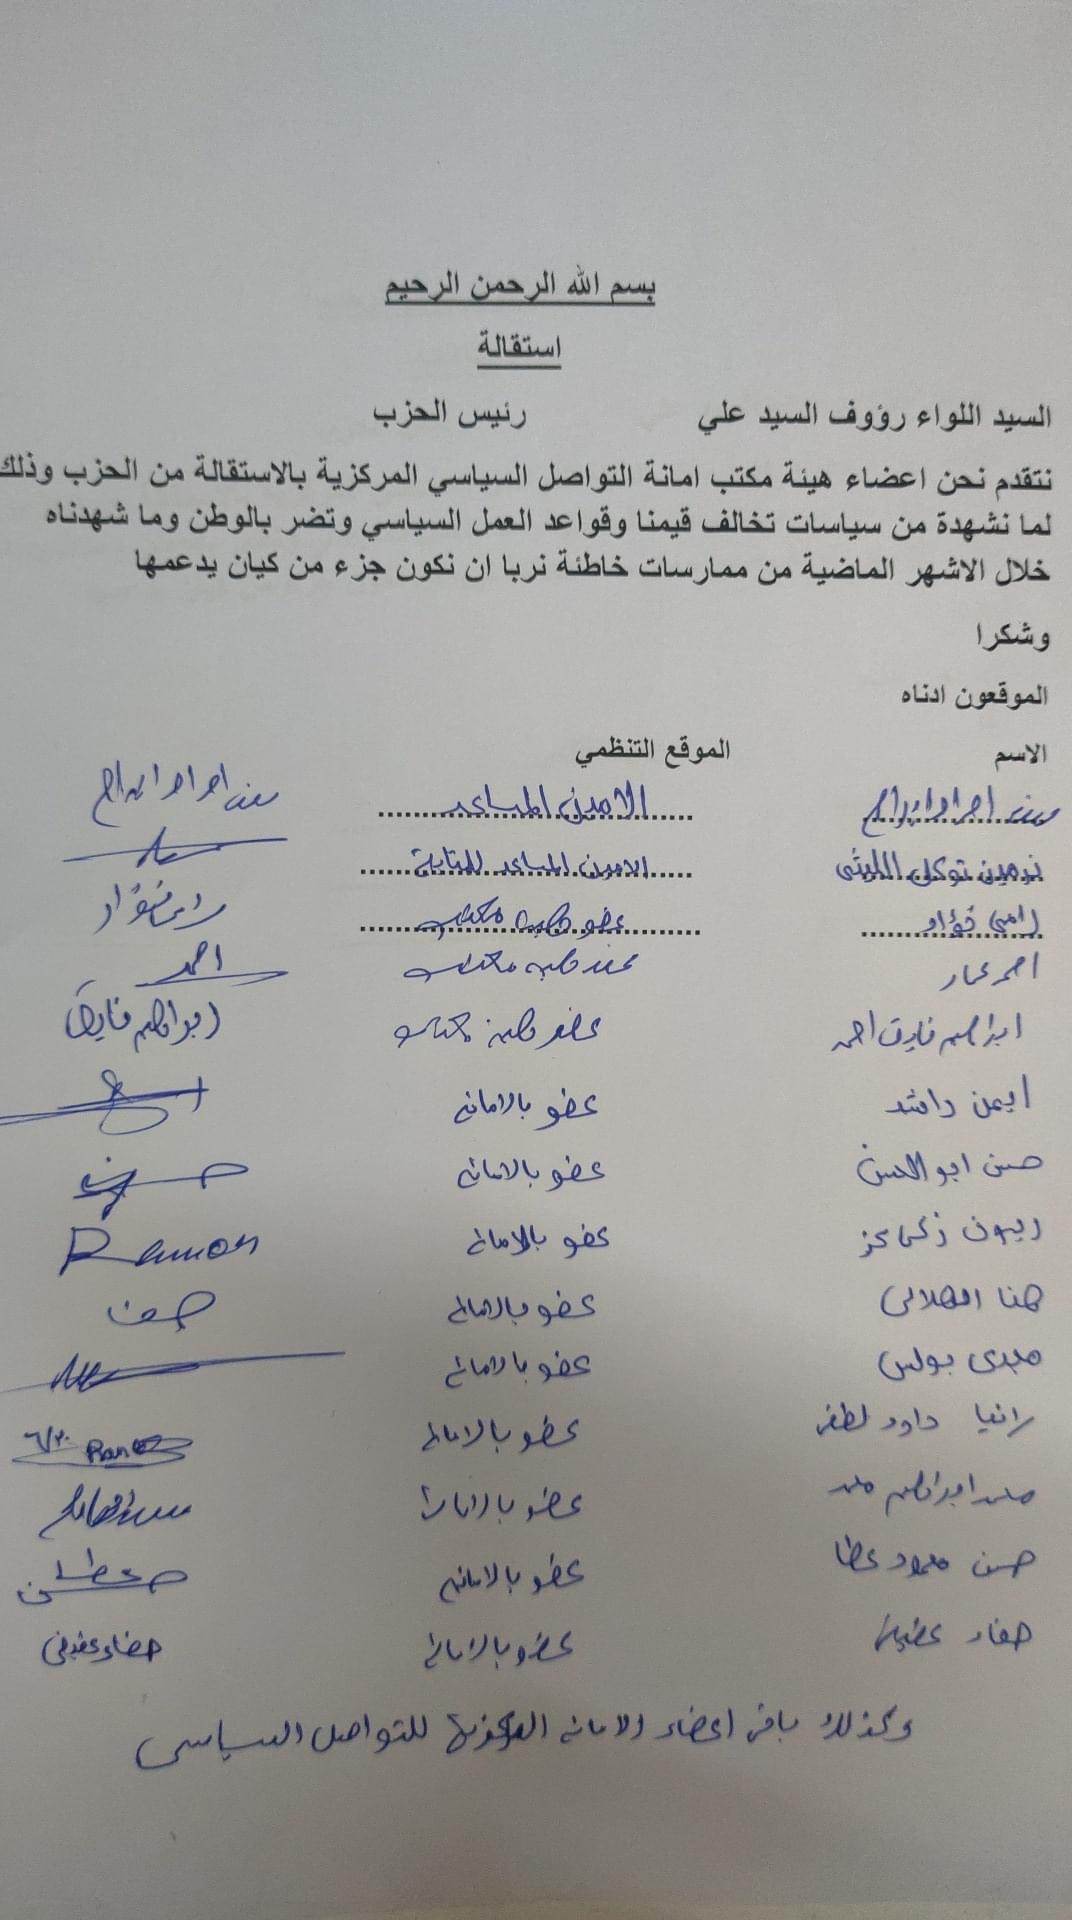 بسم الله الرحمن الرحيم
استقالة
السيد اللواء رؤوف السيد علي رئيس الحزب
نتقدم نحن اعضاء هيئة مكتب امانة التواصل السياسي المركزية بالاستقالة من الحزب وذلك
لما نشهدة من سياسات تخالف قيمنا وقواعد العمل السياسي وتضر بالوطن وما شهدناه
خلال الاشهر الماضية من ممارسات خاطئة نربا ان نكون جزء من كيان يدعمها
وشكرا
الموقعون ادناه
الاسم الموقع التنظمي
الامين المساعد
نرمين توكل الامين المساعد للمتابعة
رامى فؤاد عضو هيئة مكتب
احمد عمار عضو هيئة مكتب احمد
ابراهيم فاروق احمد عضو هيئة مكتب
ايمن راشد عضو بالامانه
حسن ابو الحسن عضو بالامانه
ريمون زكى عضو بالامانه Ramon
هنا الهلالى عضو بالامانه
مجدى بولس عضو بالامانه
رانيا داود لطفى عضو بالامانه
محمد ابراهيم محمد عضو بالامانه
حسن محمود عطا عضو بالامانه
عضو بالامانه
وكذلك باقى اعضاء الامانه المركزية للتواصل السياسى